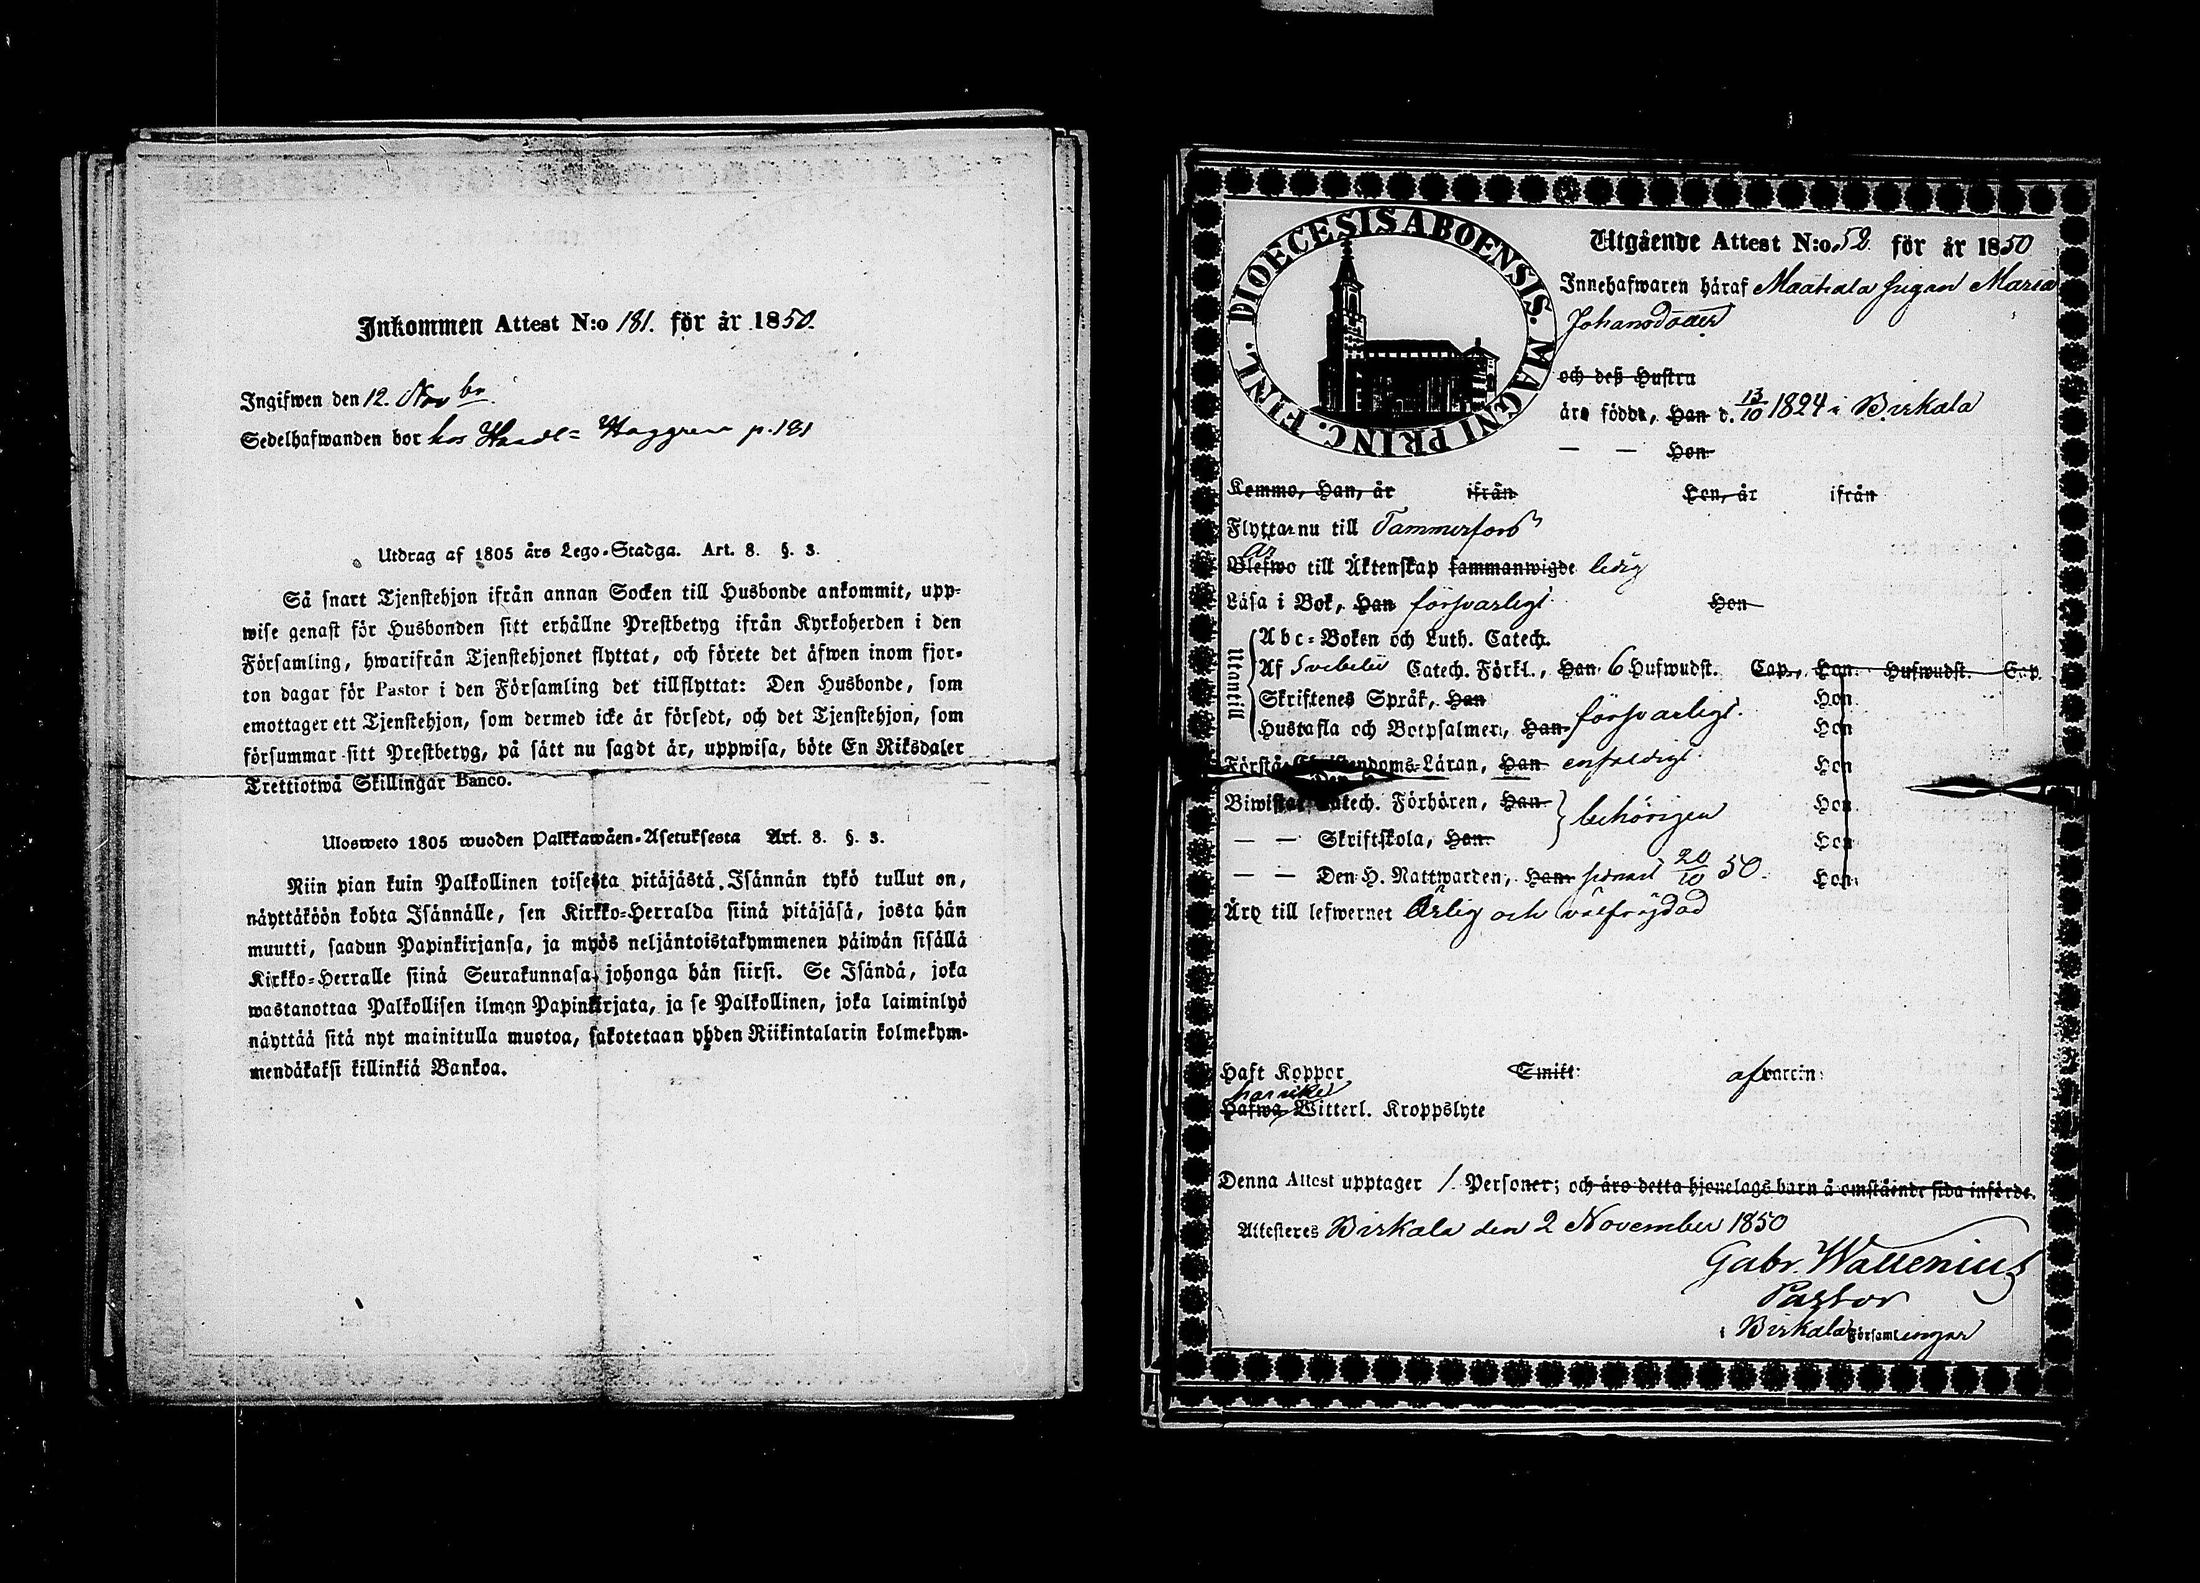 Inkommen Attest N:o 181. för år 1850.
Ingifwen den 12. Novbr.
Sedelhafwanden bor hos Handl= Haggren p. 181
Utdrag af 1805 års Lego-Stadga. Art. 8. §. 3.
Så snart Tjenstehjon ifrån annan Socken till Husbonde ankommit, upp-
wise genast för Husbonden sitt erhållne Prestbetyg ifrån Kyrkoherden i den
Församling, hwarifrån Tjenstehjonet flyttat, och förete det äfwen inom fjor-
ton dagar för Pastor i den Församling det tillflyttat: Den Husbonde, som
emottager ett Tjenstehjon, som dermed icke är försedt, och det Tjenstehjon, som
försummar sitt Prestbetyg, på sätt nu sagdt är, uppwisa, böte En Riksdaler
Trettiotwå Skillingar Banco.
Ulosweto 1805 wuoden Palkkawäen-Asetuksesta Art. 8. §. 3.
Niin pian kuin Palkollinen toisesta pitäjästä Isännän tykö tullut on,
näyttäköön kohta Isännälle, sen Kirkko-Herralda siinä pitäjäsä, josta hän
muutti, saadun Papinkirjansa, ja myös neljäntoistakymmenen päiwän sisällä
Kirkko-Herralle siinä Seurakunnasa, johonga hän siirsi. Se Isändä, joka
wastanottaa Palkollisen ilman Papinkirjata, ja se Palkollinen, joka laiminlyö
näyttää sitä nyt mainitulla muotoa, sakotetaan yhden Riikintalarin kolmekym-
mendäkaksi killinkiä Bankoa.
DIOECESIS ABOENSIS. MAGNI PRINC. FINL.
Utgående Attest N:o 52 för år 1850
Innehafwaren häraf Maatiala pigan Maria
Johansdotter
och deß Hustru
äro födde, Han d. 13/10 1824 i Birkala
— — Hon
Komme, Han, år ifrån Hon, år ifrån
Flyttar nu till Tammerfors
är
Blefwo till Äktenskap sammanwigde ledig
Läsa i Bok, Han försvarligt Hon
Utantill
Abc-Boken och Luth. Catech.
Af Svebelii Catech. Förkl., Han 6 Hufwudst. Cap., Hon Hufwudst. Cap.
Skriftenes Språk, Han Hon
Hustafla och Botpsalmer, Han försvarligt. Hon
Förstå Christendoms-Läran, Han enfaldigt Hon
Biwistat Catech. Förhören, Han behörigen Hon
— — Skriftskola, Han Hon
— — Den H. Nattwarden, Han senast 20/10 50. Hon
Äro till lefwernet Ärlig och välfrägdad
Haft Koppor Smitt: afvaccin:
har icke
Hafwa Witterl. Kroppslyte
Denna Attest upptager 1. Personer; och äro detta hjonelags barn å omstående sida införde.
Attesteres Birkala den 2 November 1850
Gabr. Wallenius
Pastor
i Birkala Församlingar